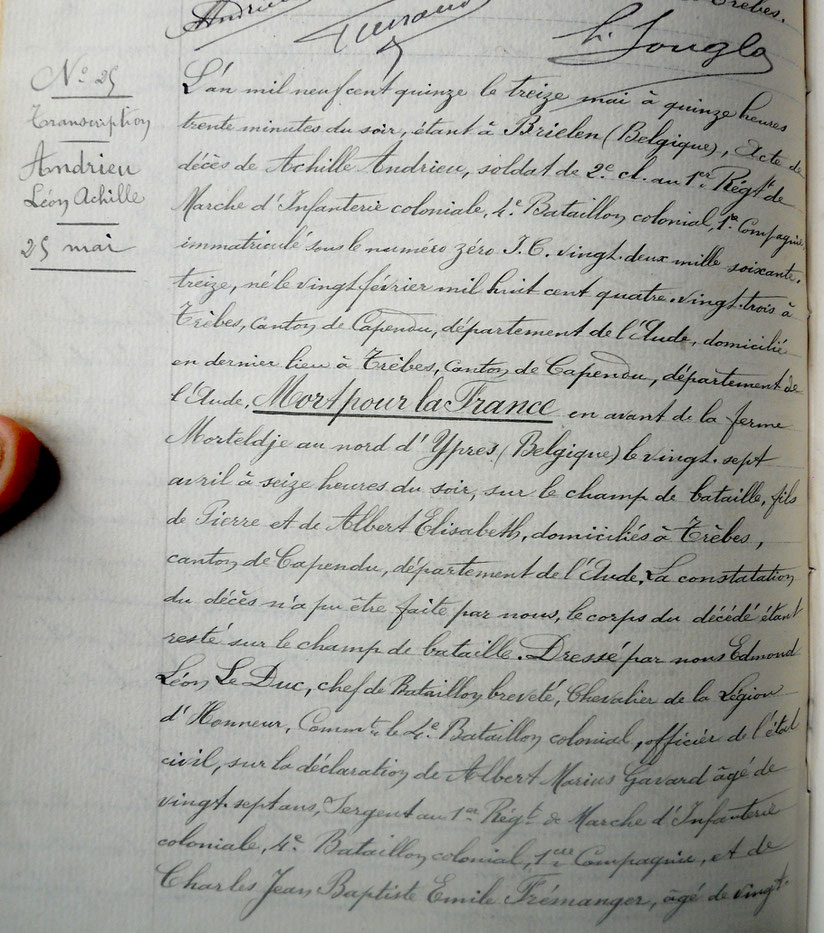 Trèbes.
Andrieu
L. Jougla
N° 25
Transcription
Andrieu
Léon Achille
25 mai
L'an mil neuf cent quinze le treize mai à quinze heures
trente minutes du soir, étant à Brielen (Belgique), Acte de
décès de Achille Andrieu, soldat de 2e cl. au 1er Régt de
Marche d'Infanterie coloniale, 4e Bataillon colonial, 1re Compagnie
immatriculé sous le numéro zéro I. C. vingt-deux mille soixante-
treize, né le vingt février mil huit cent quatre-vingt-trois à
Trèbes, canton de Capendu, département de l'Aude, domicilié
en dernier lieu à Trèbes, canton de Capendu, département de
l'Aude. Mort pour la France en avant de la ferme
Morteldje au nord d'Ypres (Belgique) le vingt-sept
avril à seize heures du soir, sur le champ de bataille, fils
de Pierre et de Albert Elisabeth, domiciliés à Trèbes,
canton de Capendu, département de l'Aude, La constatation
du décès n'a pu être faite par nous, le corps du décédé étant
resté sur le champ de bataille. Dressé par nous Edmond
Léon Le Duc, chef de Bataillon breveté, Chevalier de la Légion
d'Honneur, Commt le 4e Bataillon colonial, officier de l'état
civil, sur la déclaration de Albert Marius Gavard âgé de
vingt-sept ans, Sergent au 1er Régt de Marche d'Infanterie
coloniale, 4e Bataillon colonial, 1ère Compagnie, et de
Charles Jean Baptiste Emile Frémanger, âgé de vingt-